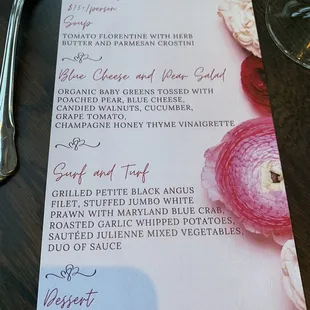 /person
Soup
TOMATO FLORENTINE WITH HERB
BUTTER AND PARMESAN CROSTINI
Blue Cheese and Pear Salad
ORGANIC BABY GREENS TOSSED WITH
POACHED PEAR, BLUE CHEESE,
CANDIED WALNUTS, CUCUMBER,
GRAPE TOMATO,
CHAMPAGNE HONEY THYME VINAIGRETTE
Surf and Turf
GRILLED PETITE BLACK ANGUS
FILET, STUFFED JUMBO WHITE
PRAWN WITH MARYLAND BLUE CRAB,
ROASTED GARLIC WHIPPED POTATOES,
SAUTÉED JULIENNE MIXED VEGETABLES,
DUO OF SAUCE
Dessert